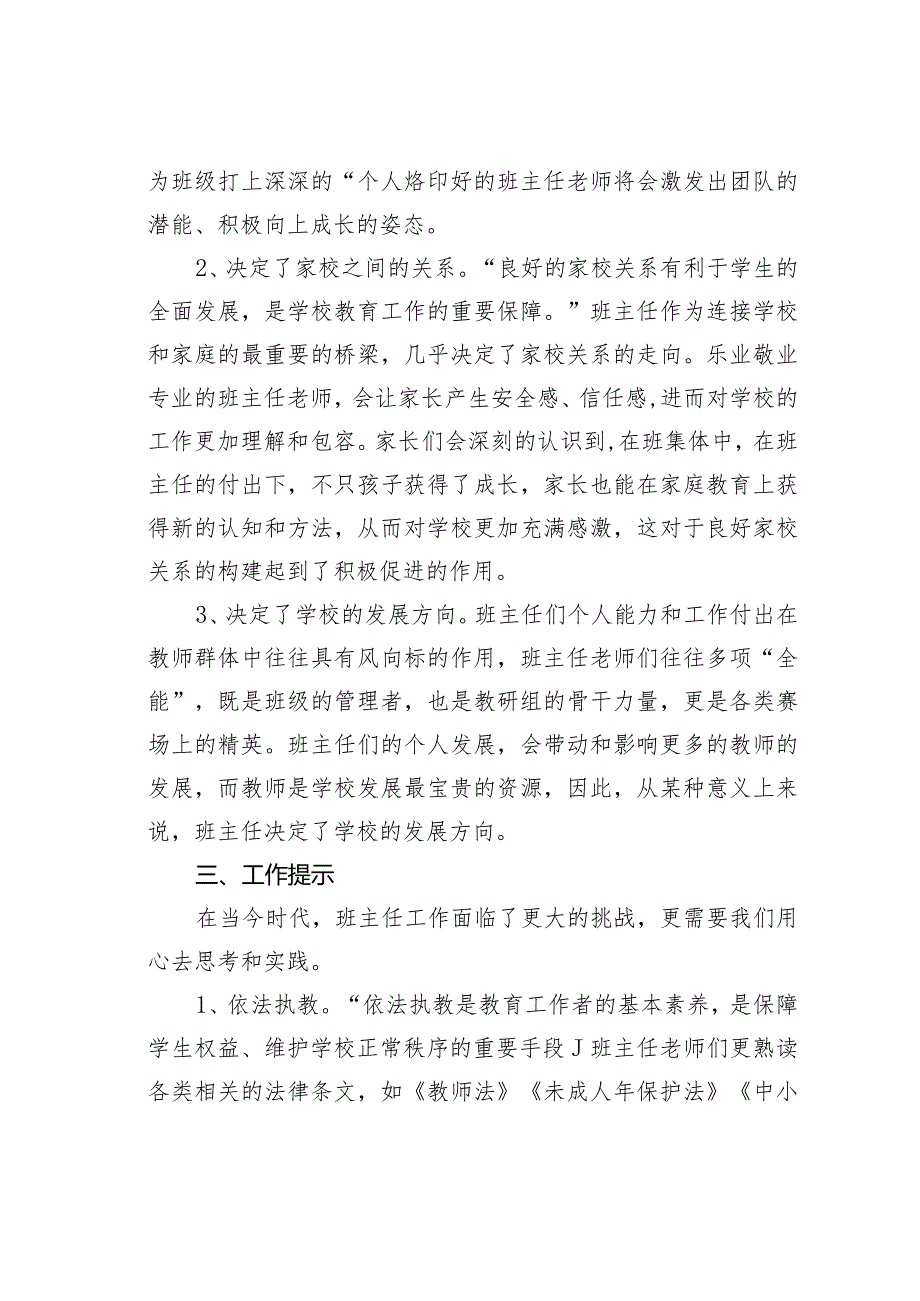 为班级打上深深的“个人烙印好的班主任老师将会激发出团队的
潜能、积极向上成长的姿态。
2、决定了家校之间的关系。“良好的家校关系有利于学生的
全面发展，是学校教育工作的重要保障。”班主任作为连接学校
和家庭的最重要的桥梁，几乎决定了家校关系的走向。乐业敬业
专业的班主任老师，会让家长产生安全感、信任感,进而对学校的
工作更加理解和包容。家长们会深刻的认识到,在班集体中，在班
主任的付出下，不只孩子获得了成长，家长也能在家庭教育上获
得新的认知和方法，从而对学校更加充满感激，这对于良好家校
关系的构建起到了积极促进的作用。
3、决定了学校的发展方向。班主任们个人能力和工作付出在
教师群体中往往具有风向标的作用，班主任老师们往往多项“全
能”，既是班级的管理者，也是教研组的骨干力量，更是各类赛
场上的精英。班主任们的个人发展，会带动和影响更多的教师的
发展，而教师是学校发展最宝贵的资源，因此，从某种意义上来
说，班主任决定了学校的发展方向。
三、工作提示
在当今时代，班主任工作面临了更大的挑战，更需要我们用
心去思考和实践。
1、依法执教。“依法执教是教育工作者的基本素养，是保障
学生权益、维护学校正常秩序的重要手段J班主任老师们更熟读
各类相关的法律条文，如《教师法》《未成人年保护法》《中小